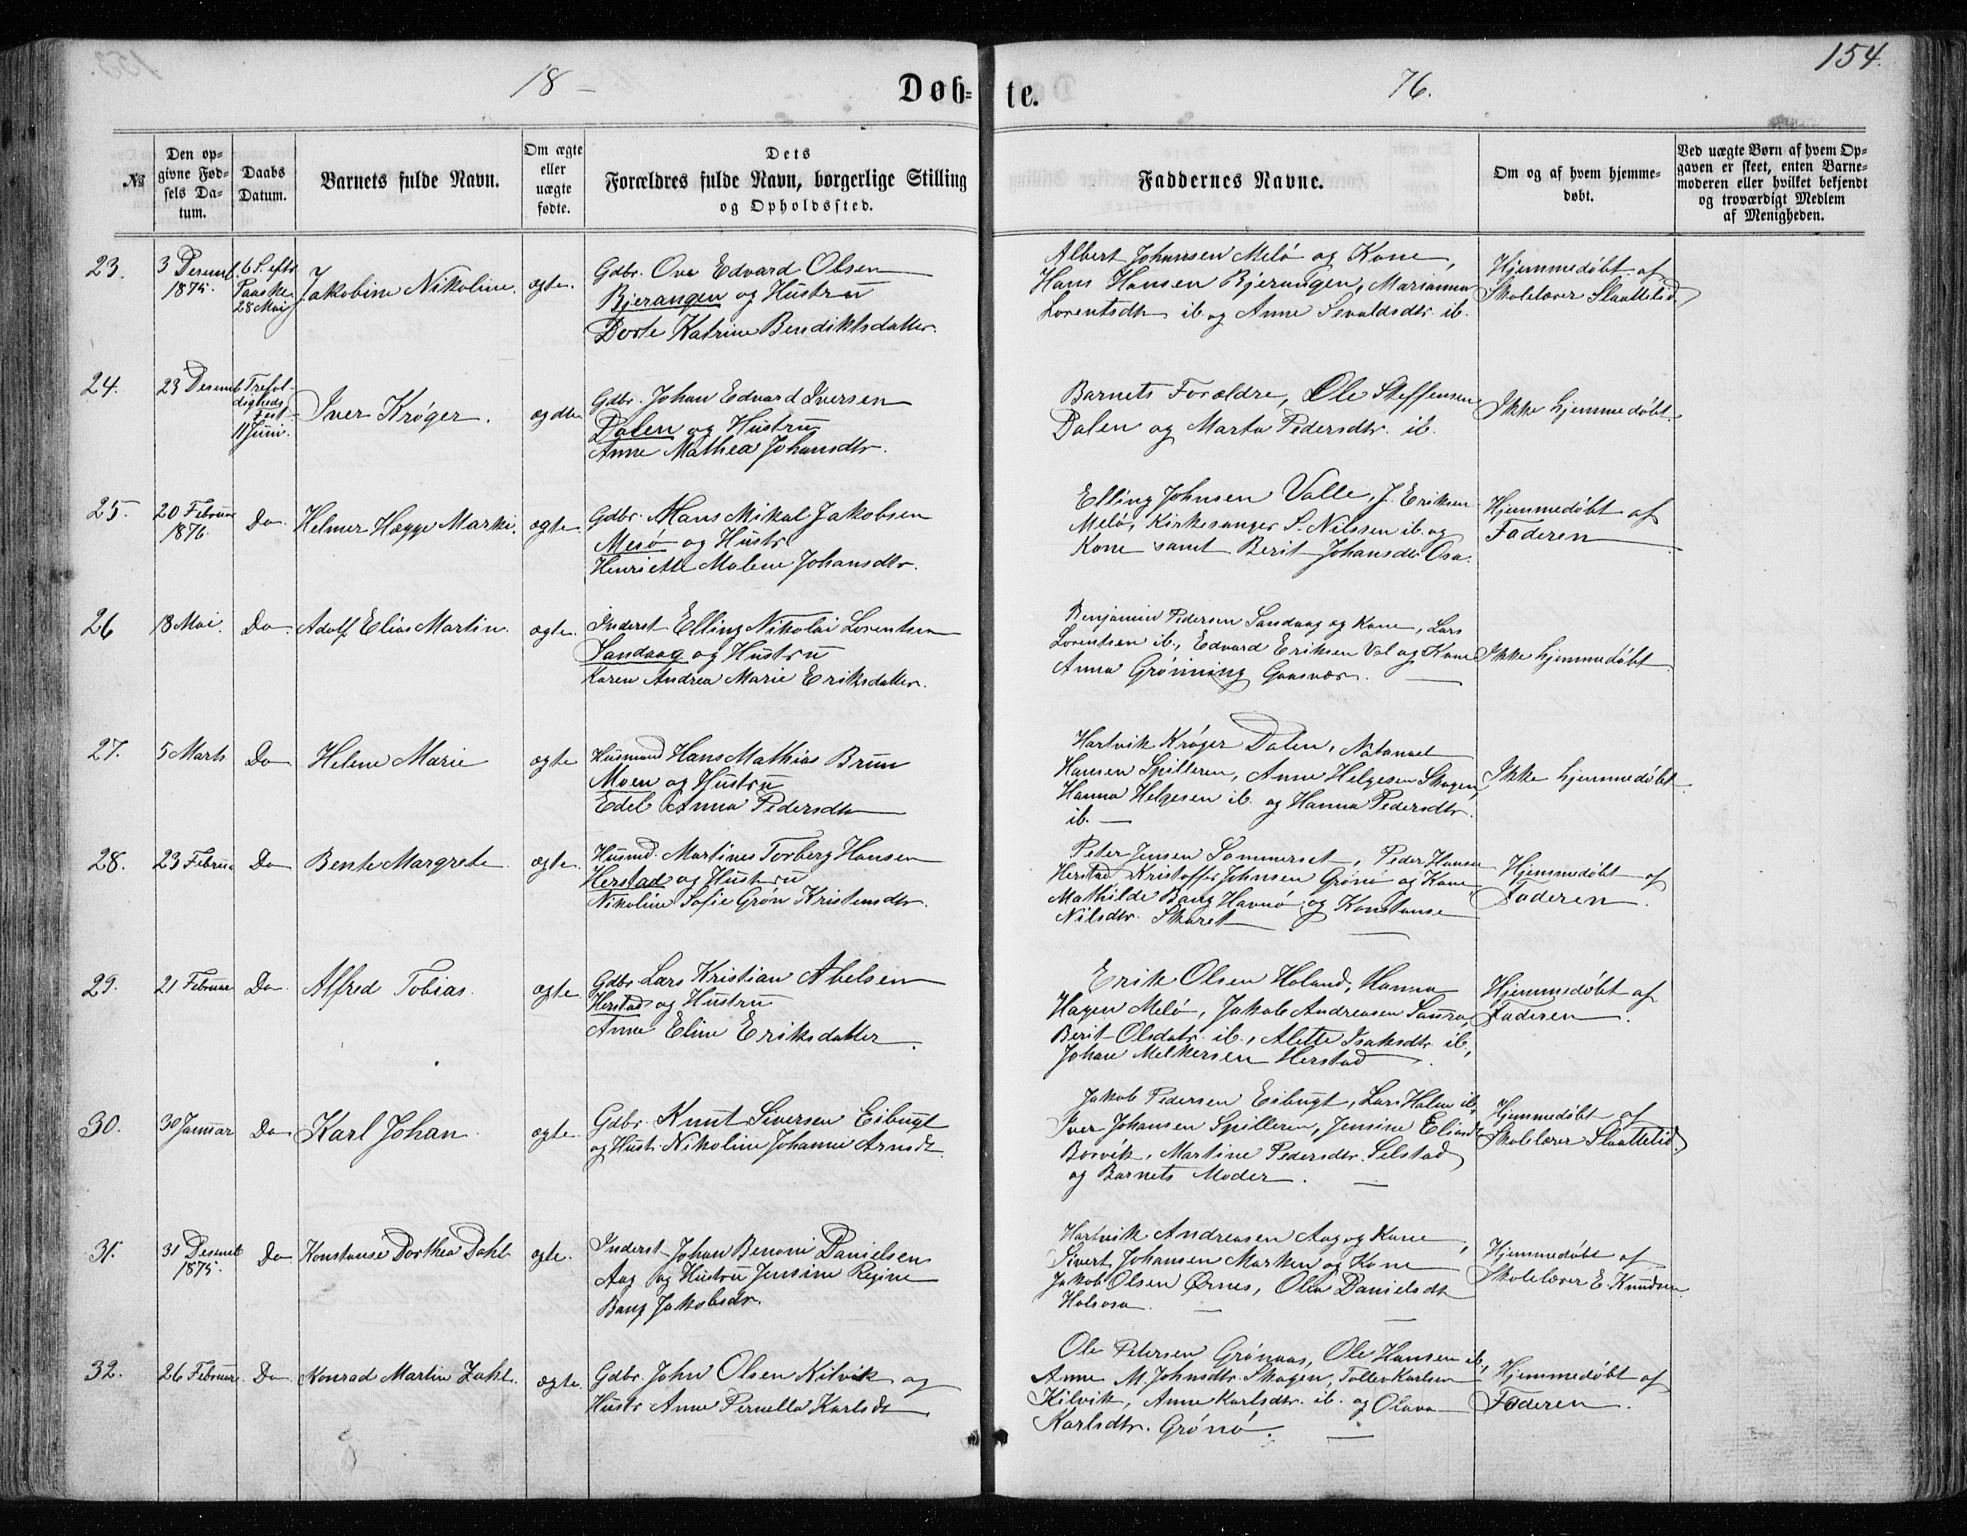 154.
18 — Døb-te. 76.
№
Den op-
givne Fød-
sels Da-
tum.
Daabs
Datum.
Barnets fulde Navn.
Om ægte
eller
uægte
fødte.
Dets
Forældres fulde Navn, borgerlige Stilling
og Opholdssted.
Faddernes Navne.
Om og af hvem hjemme-
døbt.
Ved uægte Børn af hvem Op-
gaven er skeet, enten Barne-
moderen eller hvilket bekjendt
og troværdigt Medlem
af Menigheden.
23.
3 Desemb.
1875.
6 S. eftr
Paaske
28 Mai
Jakobine Nikoline.
ægte.
Gdbr. Ove Edvard Olsen
Bjerangen og Hustru
Dorte Katrine Bendiktsdatter.
Albert Johnsen Melö og Kone,
Hans Hansen Bjerangen, Marianna
Lorentsdtr ib og Anne Sevaldsdtr. ib.
Hjemmedöbt af
Skolelærer Slaattelid
24.
23 Desemb
Trefol-
digheds
Fest
11 Juni.
Iver Kröger.
ægdte
Gdbr. Johan Edvard Iversen
Dalen og Hustru
Anne Mathea Johansdtr.
Barnets Forældre, Ole Steffensen
Dalen og Marta Pedersdtr. ib.
Ikke hjemmedöbt.
25.
20 Februar
1876.
Do
Helmer Hagge Marki.
ægte.
Gdbr. Hans Mikal Jakobsen
Mesö og Hustr.
Henriette Malene Johansdtr.
Elling Johnsen Valle, J. Eriksen
Melö, Kirkesanger S. Nilssen ib. og
Kone samt Berit Johansdtr Osa.
Hjemmedöbt af
Faderen
26
18 Mai.
Do.
Adolf Elias Martin.
ægte.
Inderst Elling Nikolai Lorentsen
Sandaag og Hustru
Karen Andrea Marie Eriksdatter.
Benjamin Pedersen Sandaag og Kone, Lars
Lorentsen ib., Edvard Eriksen Val og Kone
Anna Grönning Gaasvær.
Ikke hjemmedöbt
27.
5 Marts
Do
Helene Marie
ægte
Husmand Hans Mathias Bruun
Moen og Hustru
Edel Anna Pedersdtr
Hartvik Kröger Dalen, Natanael
Hansen Spilleren, Anne Helgesen Skagen,
Hanna Helgesen ib. og Hanna Pedersdtr.
ib. —
Ikke hjemmedöbt.
28.
23 Februar
Do
Bente Margrete
ægte.
Husmd. Martines Torberg Hansen
Herstad og Hustru
Nikoline Sofie Grön Kristensdtr.
Peter Jensen Sommerset, Peder Hansen
Herstad Kristoffer Johnsen Grönö og Kone
Mathilde Bang Havnö, og Konstanse
Nilsdtr. Skaret
Hjemmedöbt af
Faderen.
29.
21 Februar
Do.
Alfred Tobias.
ægte.
Gdbr Lars Kristian Abelsen
Herstad og Hustru
Anne Eline Eriksdatter.
Erik Olsen Holand, Hanna
Hagen Melö, Jakob Andreasen Saura,
Berit Olsdatr. ib., Alette Isaksdtr. ib,
Johan Melkersen Herstad
Hjemmedöbt af
Faderen.
30.
30 Januar
Do
Karl Johan.
ægte.
Gdbr. Knut Siversen Eibugt
og Hustr. Nikoline Johanne Arnsdtr.
Jakob Pedersen Eibugt, Lars Holm ib,
Iver Johansen Spilleren, Jensine Eliasdtr
Bosvik, Martine Pedersdtr. Selstad
og Barnets Moder.
Hjemmedöbt af
Skolelærer Slaattelid.
31.
31 Desemb
1875.
Do
Konstanse Dorthea Dahl.
ægte.
Inderst Johan Benoni Danielsen
Aag og Hustru Jensine Regine
Bang Jakobsdr.
Hartvik Andreasen Aag og Kone,
Sivert Johansen Marken og Kone
Jakob Olsen Ørnes, Olea Danielsdtr
Halsosa.
Hjemmedöbt af
Skolelærer E. Knudsen.
32.
26 Februar
Do.
Konrad Martin Zahl.
ægte.
Gdbr. John Olsen Kilvik og
Hustr Anne Pernella Karlsdtr
Ole Petersen Grönaas, Ole Hansen ib.,
Anne M. Johnsdtr. Skagen, Tollev Karlsen
Kilvik, Anne Karlsdtr. ib. og Olava
Karlsdtr. Grönö.
Hjemmedöbt af
Faderen.